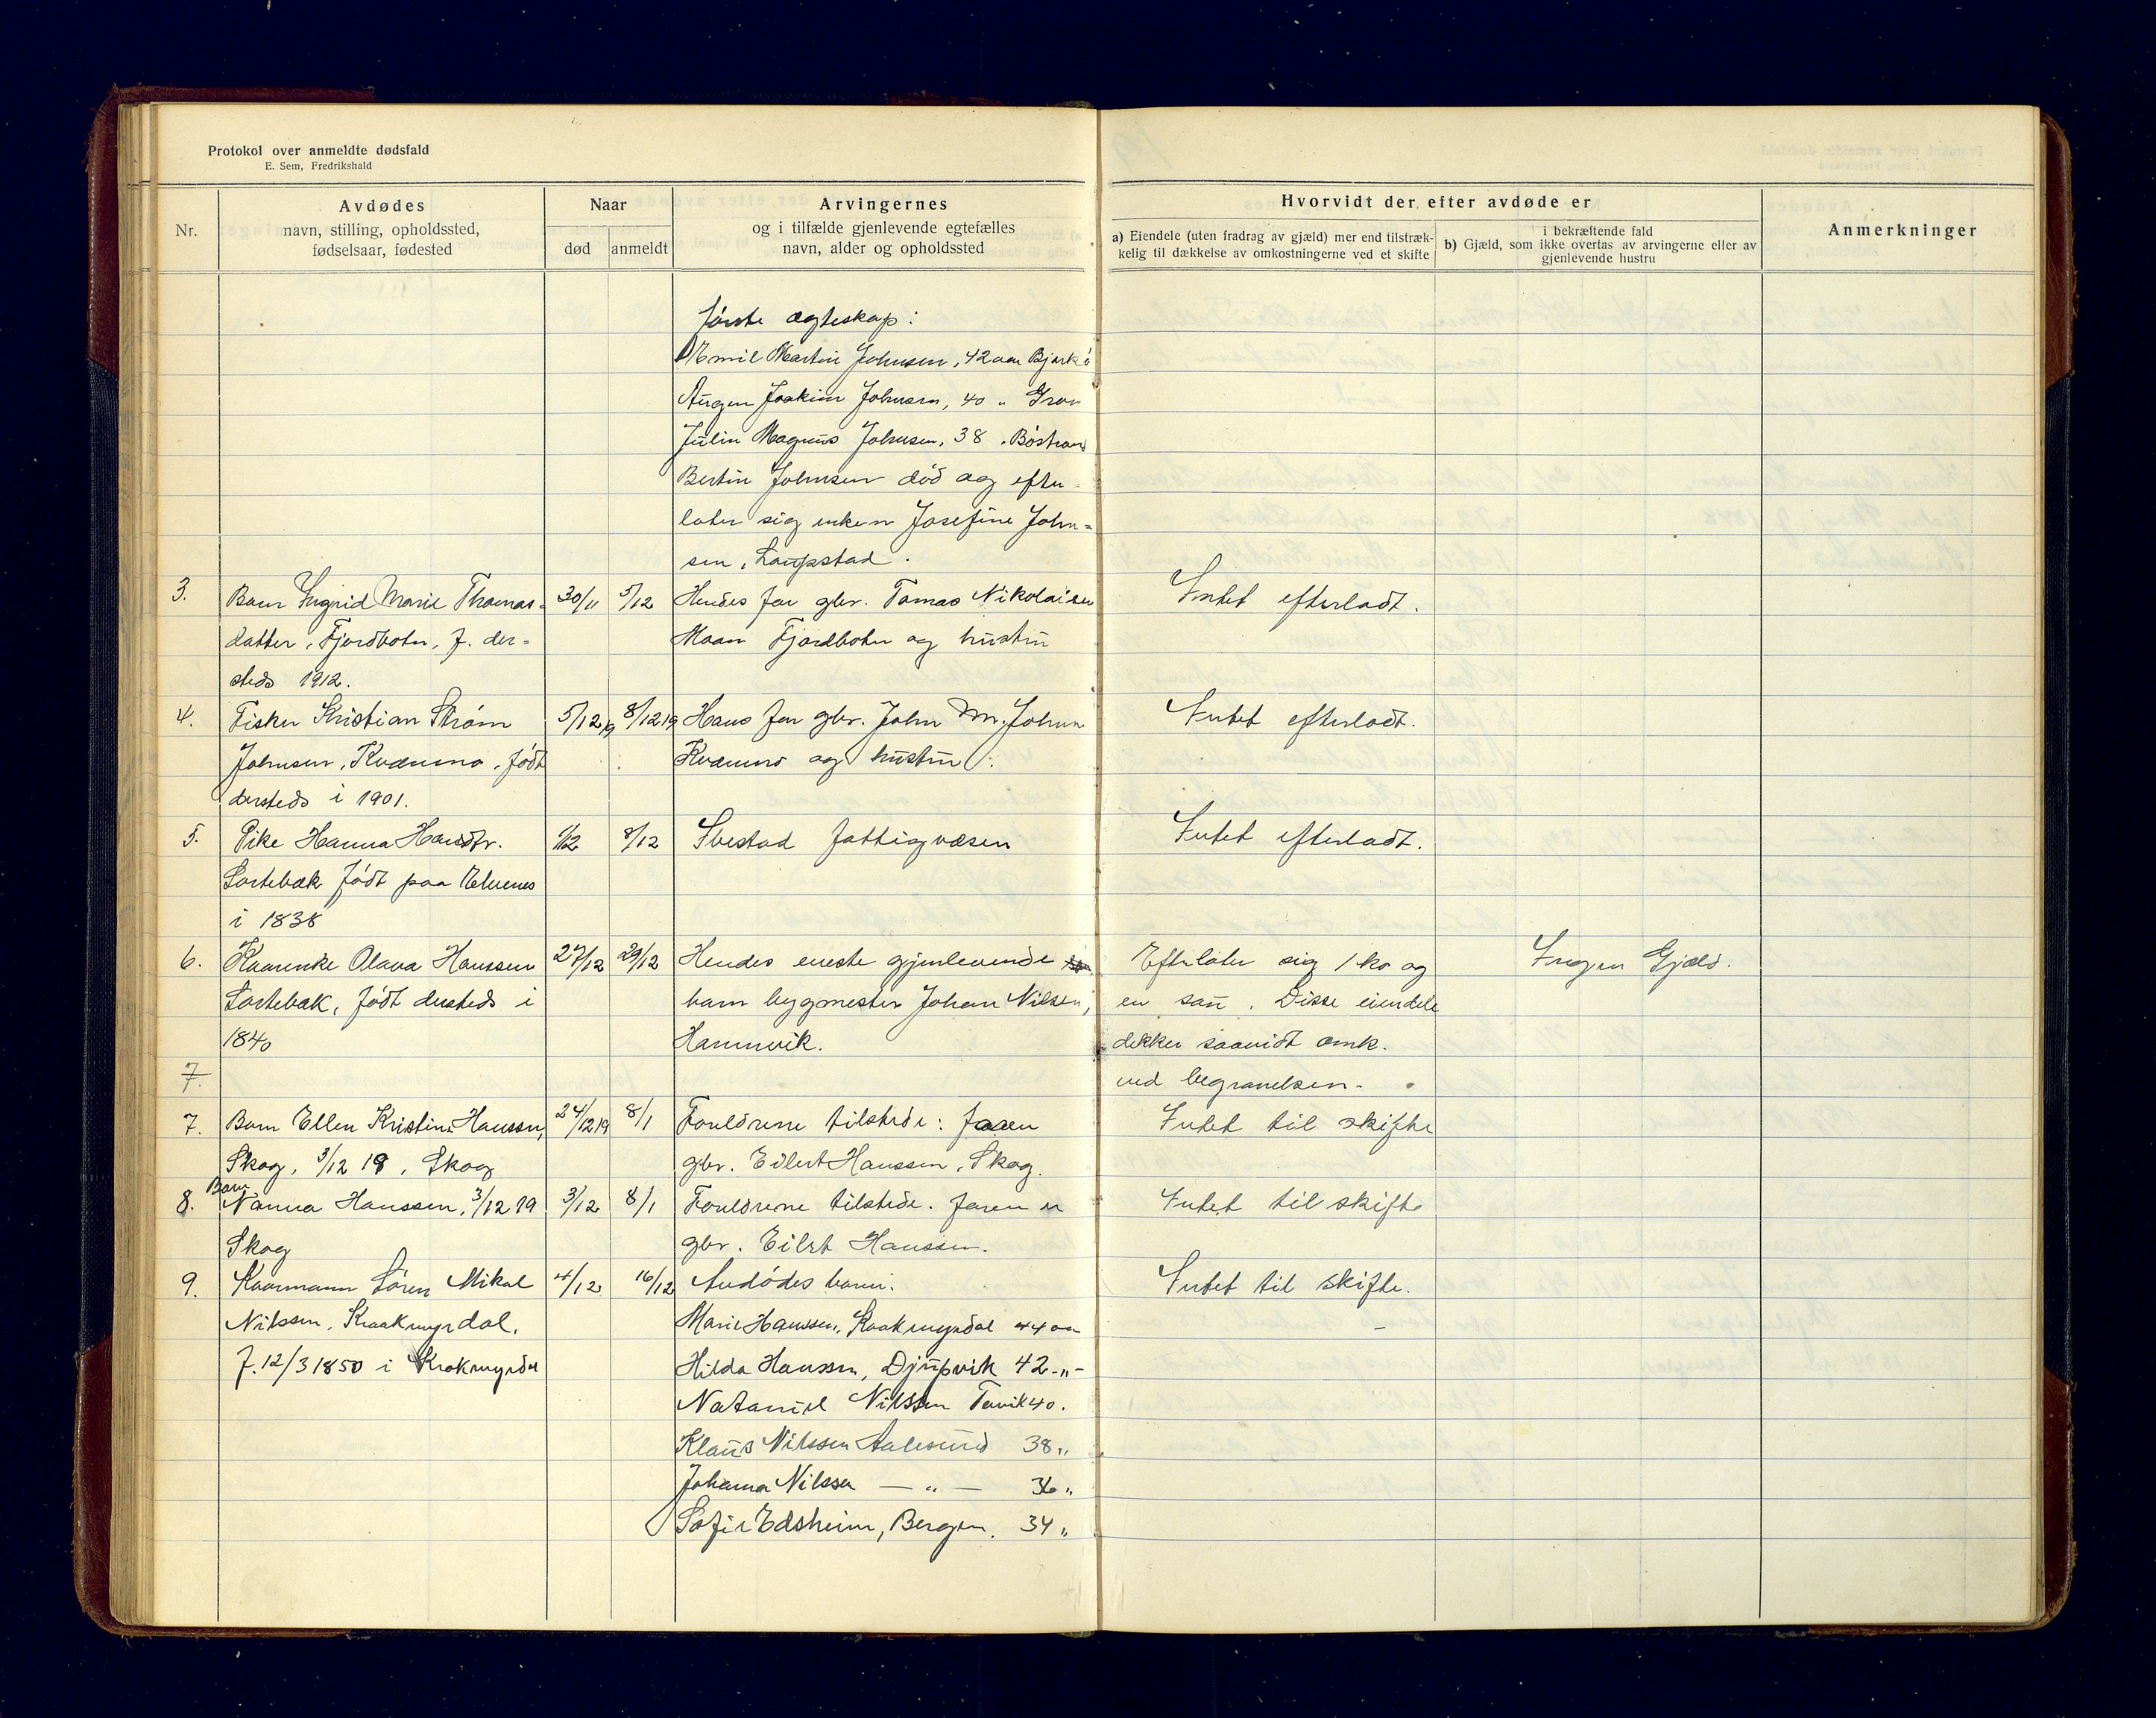 Protokol over anmeldte dødsfald
E. Sem, Fredrikshald
Nr.
Avdødes
navn, stilling, opholdssted,
fødselsaar, fødested
Naar
død
anmeldt
Arvingernes
og i tilfælde gjenlevende egtefælles
navn, alder og opholdssted
Hvorvidt der efter avdøde er
a) Eiendele (uten fradrag av gjæld) mer end tilstræk-
kelig til dækkelse av omkostningerne ved et skifte
i bekræftende fald
b) Gjæld, som ikke overtas av arvingerne eller av
gjenlevende hustru
Anmerkninger
første ægteskap:
Emil Martin Johnsen, 42 aar Bjarkö
Joakim Johnsen, 40 " Grov
Julin Magnus Johnsen, 38 " Böstrand
Bertin Johnsen död og efter-
later sig enken Josefine John=
sen, Laupstad.
3. Barn Ingrid Marie Thomas= 30/11 5/12 Hendes far gbr. Tomas Nikolaisen Intet efterladt.
datter, Fjordbotn, f. der= Moan Fjordbotn og hustru
steds 1912.
4. Fisker Kristian Strøm 5/12 19 8/12 19 Hans far gbr. John M. Johnsen Intet efterladt.
Johnsen, Kvænna, født Kvænna og hustru.
dersteds i 1901.
5. Pike Hanna Hansdtr. 1/12 8/12 Ibestad fattigvæsen Intet efterladt.
Sortebæk født paa Elvenes
i 1838
6. Kaarenke Olava Hanssen 27/12 29/12 Hendes eneste gjenlevende Efterlater sig 1 ko og Ingen Gjæld.
Sortebæk, født dersteds i barn bygmester Johan Nilsen, en sau. Disse eiendele
1840 Hamnvik. dekker saavidt omk.
7. ved begravelsen.
7. Barn Ellen Kristine Hanssen, 24/12 19 8/1 Forældrene tilstede: faren Intet til skifte
Skog, 3/12 19, Skog gbr. Eilert Hanssen, Skog.
8. Barn Nanna Hanssen, 3/12 19 3/12 8/1 Forældrene tilstede. faren er Intet til skifte
Skog gbr. Eilert Hanssen.
9. Kaarmann Sören Mikal 4/12 16/12 Avdødes barn: Intet til skifte.
Nilssen, Kraakmyrdal, Marie Hanssen, Kraakmyrdal 44 aar
f. 12/3 1850 i Krakmyrdal Hilda Hanssen, Djupvik 42 -"-
Nataniel Nilssen Tovik 40.
Klaus Nilssen Aalesund 38 "
Johanna Nilssen — " — 36 "
Sofie Edsheim, Bergen. 34 "